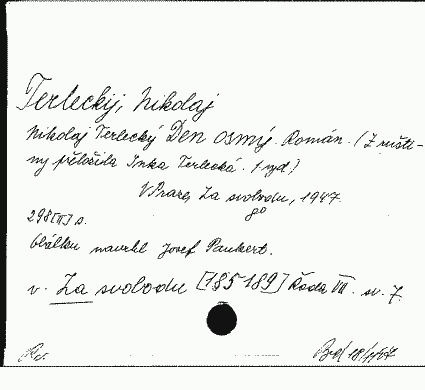 Terleckij, Nikolaj
Nikolaj Terlecký Den osmý. Román. (Z rušti-
ny přeložila Inka Terlecká. 1. vyd.)
V Praze, Za svobodu, 1947.
8°
298 [II] s.
Obálku navrhl Josef Paukert.
v. Za svobodu [185-189] Řada VII. sv. 7.